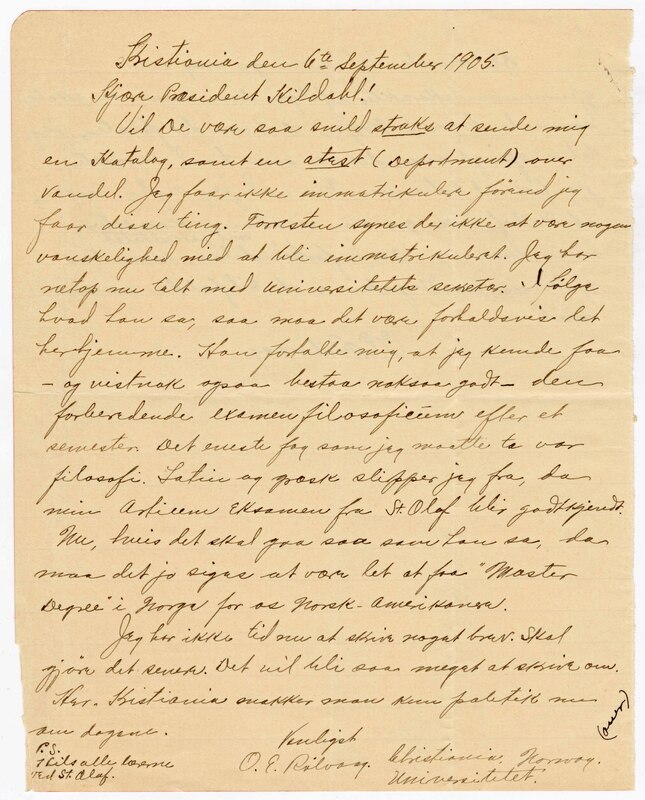 Kristiania den 6te September 1905.
Kjære Præsident Kildahl!
Vil De være saa snild straks at sende mig
en Katalog, samt en atest (Deportment) over
vandel. Jeg faar ikke immatrikulere førend jeg
faar disse ting. Forresten synes der ikke at være nogen
vanskelighed med at bli immatrikuleret. Jeg har
netop nu talt med universitetets sekretær. I følge
hvad han sa, saa maa det være forholdsvis let
herhjemme. Han fortalte mig, at jeg kunde faa
– og vistnok ogsaa bestaa noksaa godt – den
forberedende examen filosoficum efter et
semester. Det eneste fag som jeg maatte ta var
filosofi. Latin og græsk slipper jeg fra, da
min Articem Eksamen fra St. Olaf blir godtkjendt.
Nu, hvis det skal gaa saa som han sa, da
maa det jo siges at være let at faa "Master
Degree" i Norge for os Norsk-Amerikanere.
Jeg har ikke tid nu at skrive noget brev. Skal
gjøre det senere. Det vil bli saa meget at skrive om.
Her. Kristiania snakker man kun politik nu
om dagene.
(over)
Venligst
O. E. Rölvaag
Christiania, Norway.
Universitetet.
P.S.
Hils alle lærerne
ved St. Olaf.